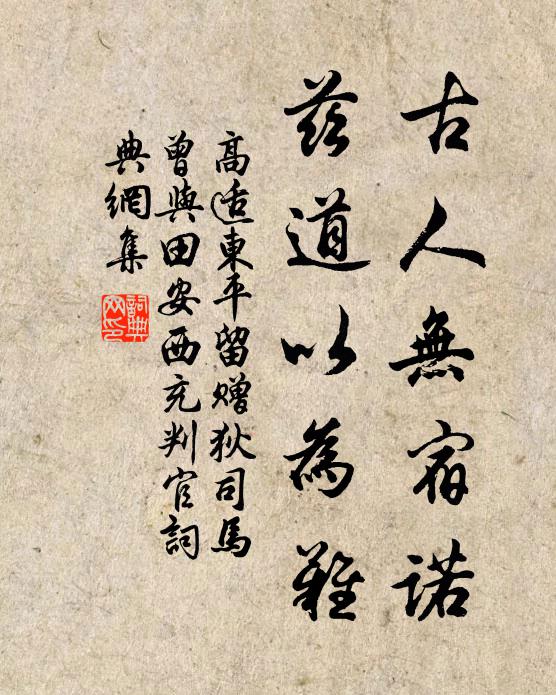 古人無宿諾
茲道以為難
高適東平留贈狄司馬
曾與田安西充判官詞
典網集
詞典
网印